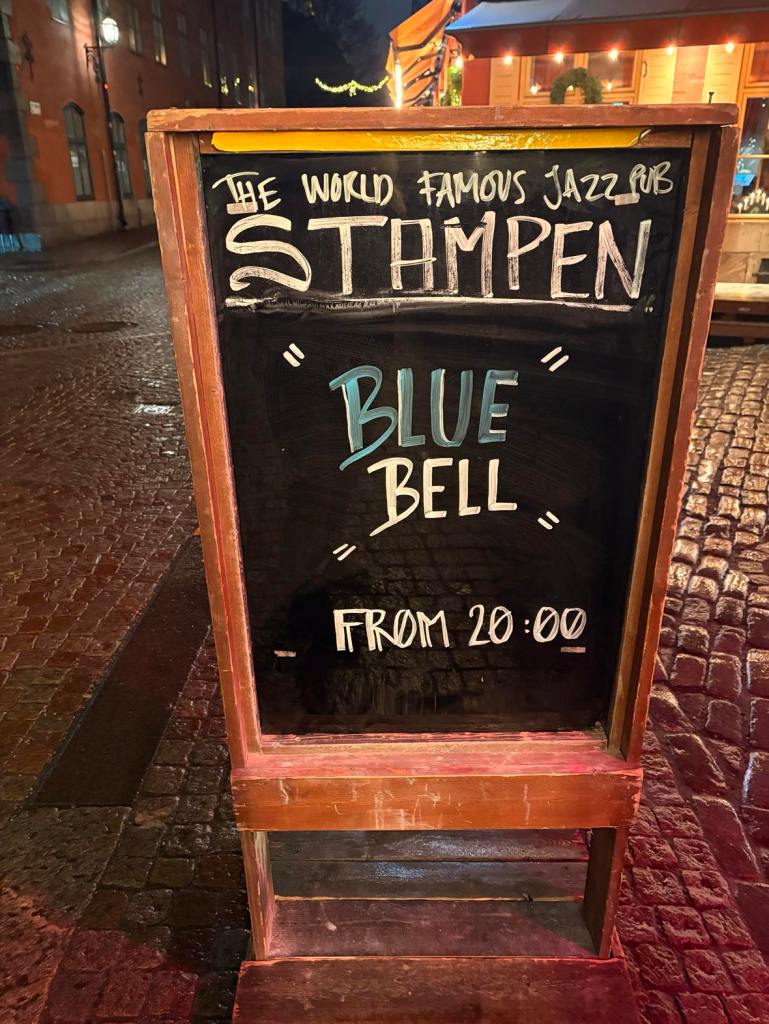 THE WORLD FAMOUS JAZZ PUB
STAMPEN
"BLUE
BELL"
FROM 20:00